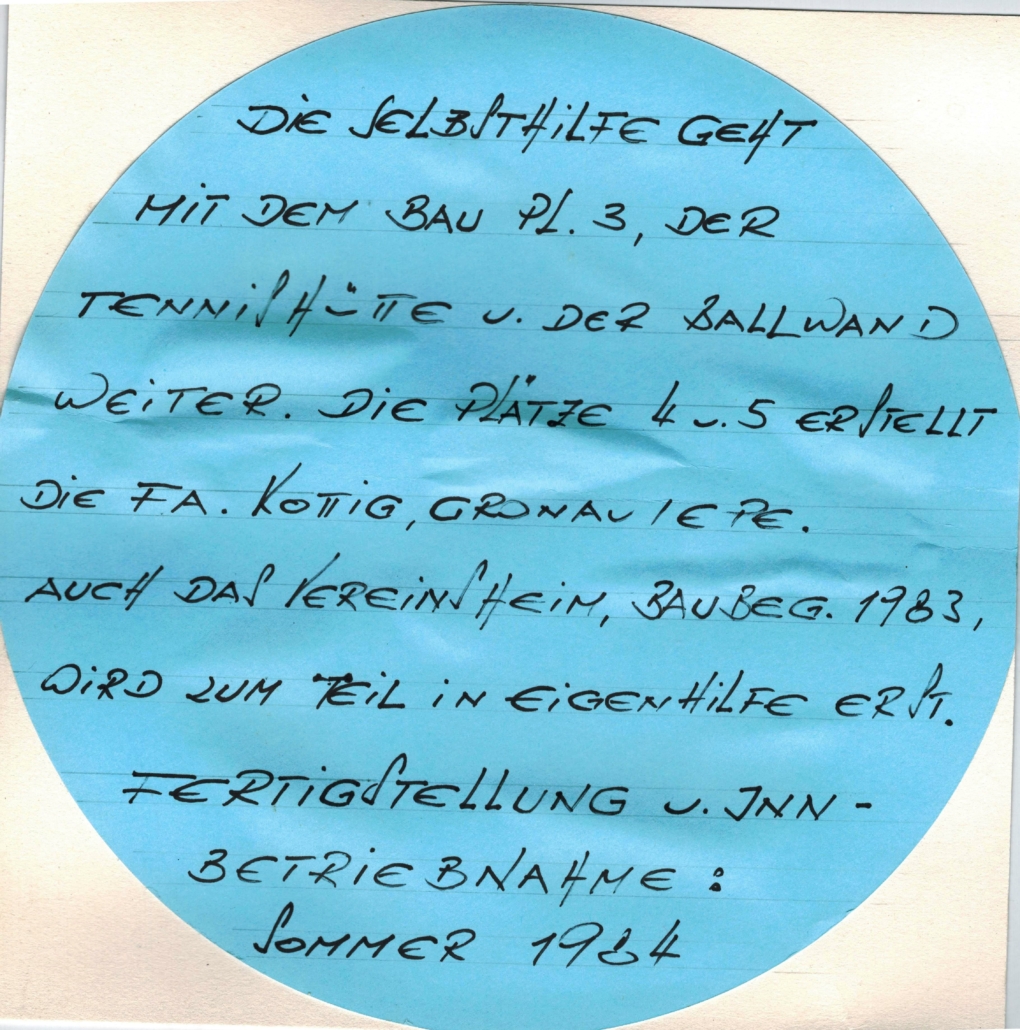 DIE SELBSTHILFE GEHT
MIT DEM BAU PL. 3, DER
TENNISHÜTTE U. DER BALLWAND
WEITER. DIE PLÄTZE 4 U. 5 ERSTELLT
DIE FA. KOTTIG, GRONAU / EPE.
AUCH DAS VEREINSHEIM, BAUBEG. 1983,
WIRD ZUM TEIL IN EIGENHILFE ERST.
FERTIGSTELLUNG U. INN-
BETRIEBNAHME :
SOMMER 1984